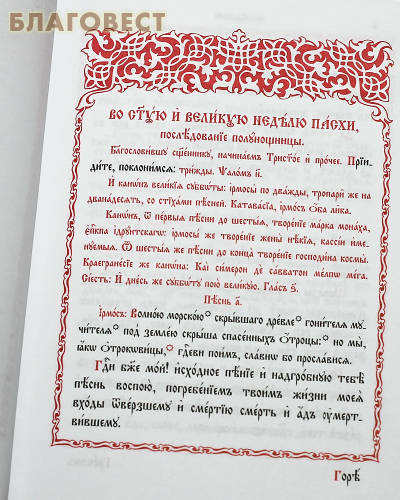 БЛАГОВЕСТ
Во ст҃ꙋ́ю и҆ вели́кꙋю недѣ́лю па́схи,
послѣ́дованїе полꙋ́нощницы.
Бл҃гослови́вшꙋ сщ҃е́нникꙋ, начина́емъ Трист҃о́е и҆ про́чее. Прїи-
ди́те, поклони́мсѧ: три́жды. Ѱало́мъ н҃.
И҆ канѡ́нъ вели́кїѧ сꙋббѡ́ты: і҆рмосы̀ по два́жды, тропарѝ же на
двана́десѧть, со стїха́ми пѣ́сней. Катава́сїа, і҆рмо́съ ѻ҆́ба ли́ка.
Канѡ́нъ, ѿ пе́рвыѧ пѣ́сни до шесты́ѧ, творе́нїе ма́рка мона́ха,
є҆пⷭ҇кпа і҆дрꙋ́нтскагѡ: і҆рмосы́ же творе́нїе жены̀ нѣ́кїѧ, кассі́и и҆ме-
нꙋ́емыѧ. Ѿ шесты́ѧ же пѣ́сни до конца̀ творе́нїе господи́на космы̀.
Краегране́сїе же канѡ́на: Каѝ си́мерон дѐ са́вватон ме́лпѡ ме́га.
Сїе́сть: И҆ дне́сь же сꙋббѡ́тꙋ пою̀ вели́кꙋю. Гла́съ ѕ҃.
Пѣ́снь а҃.
І҆рмо́съ: Волно́ю морско́ю скры́вшаго дре́вле гони́телѧ мꙋ-
чи́телѧ под̾ земле́ю скры́ша спасе́нныхъ ѻ҆́троцы: но мы̀,
ꙗ҆́кѡ ѻ҆трокѡви́цы, гдⷭ҇еви пои́мъ, сла́внѡ бо просла́висѧ.
Гдⷭ҇и бж҃е мо́й! и҆схо́дное пѣ́нїе и҆ надгро́бнꙋю тебѣ̀
пѣ́снь воспою̀, погребе́нїемъ твои́мъ жи́зни моеѧ̀
вхо́ды ѿве́рзшемꙋ и҆ сме́ртїю сме́рть и҆ а҆́дъ ᲂу҆мертви́-
вшемꙋ.
Горѣ̀